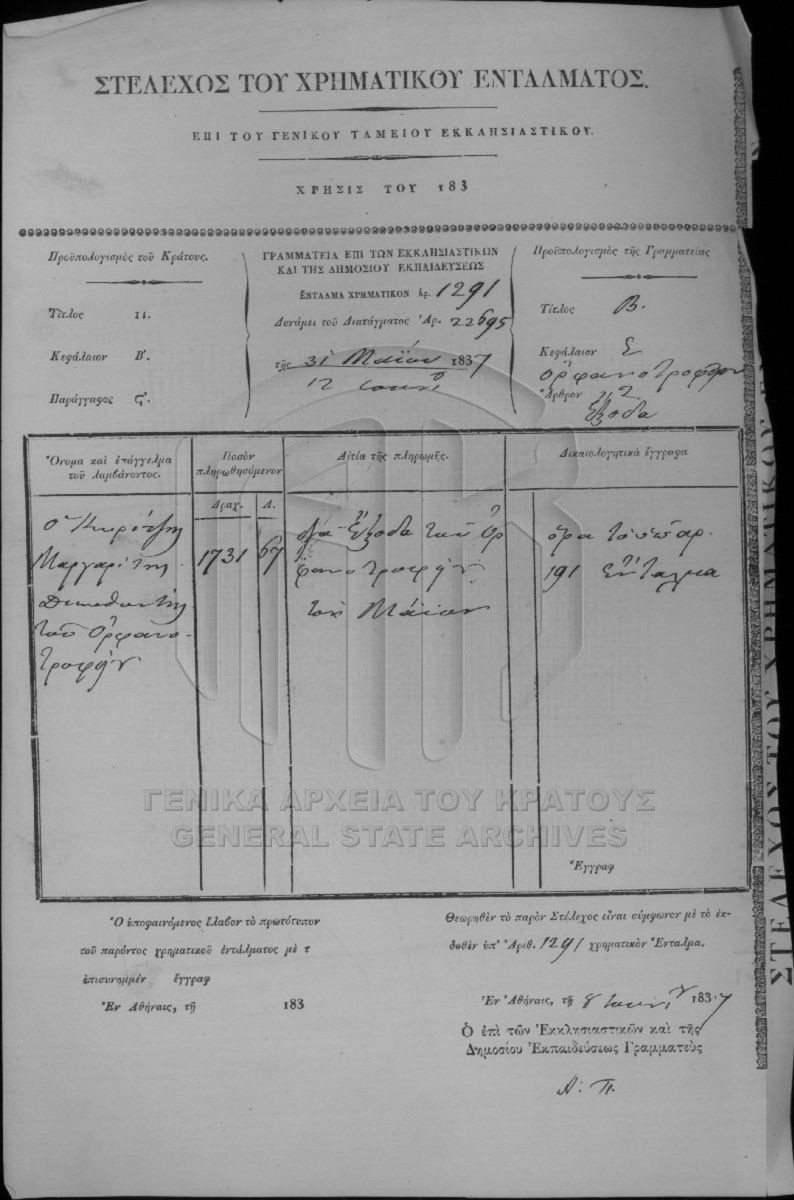 ΣΤΕΛΕΧΟΣ ΤΟΥ ΧΡΗΜΑΤΙΚΟΥ ΕΝΤΑΛΜΑΤΟΣ.
ΕΠΙ ΤΟΥ ΓΕΝΙΚΟΥ ΤΑΜΕΙΟΥ ΕΚΚΛΗΣΙΑΣΤΙΚΟΥ.
ΧΡΗΣΙΣ ΤΟΥ 183
Προϋπολογισμὸς τοῦ Κράτους.
Τίτλος II.
Κεφάλαιον Β'.
Παράγραφος ς'.
ΓΡΑΜΜΑΤΕΙΑ ΕΠΙ ΤΩΝ ΕΚΚΛΗΣΙΑΣΤΙΚΩΝ
ΚΑΙ ΤΗΣ ΔΗΜΟΣΙΟΥ ΕΚΠΑΙΔΕΥΣΕΩΣ
ΕΝΤΑΛΜΑ ΧΡΗΜΑΤΙΚΟΝ Ἀρ. 1291
Δυνάμει τοῦ Διατάγματος Ἀρ. 22695
τῆς 31 Μαΐου 1837
12
Προϋπολογισμὸς τῆς Γραμματείας
Τίτλος Β.
Κεφάλαιον
Ἄρθρον 2
Ἔξοδα
Ὄνομα καὶ ἐπάγγελμα
τοῦ λαμβάνοντος.
Ποσὸν
πληρωθησόμενον
Δραχ. Λ.
Αἰτία τῆς πληρωμῆς.
Δικαιολογητικὰ ἔγγραφα
Ὁ
Μαργαρίτης
Διευθυντὴς
τοῦ Ὀρφανο-
τροφείου
1731 67
διὰ Ἔξοδα τοῦ Ὀρ
φανοτροφείου
τὸν Μάϊον
ὅρα τὸ ὑπ' ἀρ.
191 Ἔνταλμα
Ἔγγραφ
Ὁ ὑποφαινόμενος ἔλαβον τὸ πρωτότυπον
τοῦ παρόντος χρηματικοῦ ἐντάλματος μὲ τ
ἐπισυνημμέν ἔγγραφ
Ἐν Ἀθήναις, τῇ 183
Θεωρηθὲν τὸ παρὸν Στέλεχος εἶναι σύμφωνον μὲ τὸ ἐκ-
δοθὲν ὑπ' Ἀριθ. 1291 χρηματικὸν Ἔνταλμα.
Ἐν Ἀθήναις, τῇ 8 1837
Ὁ ἐπὶ τῶν Ἐκκλησιαστικῶν καὶ τῆς
Δημοσίου Ἐκπαιδεύσεως Γραμματεὺς
Α. Π.
ΓΕΝΙΚΑ ΑΡΧΕΙΑ ΤΟΥ ΚΡΑΤΟΥΣ
GENERAL STATE ARCHIVES
ΣΤΕΛΕΧΟΣ ΤΟΥ ΧΡΗΜΑΤΙΚΟΥ